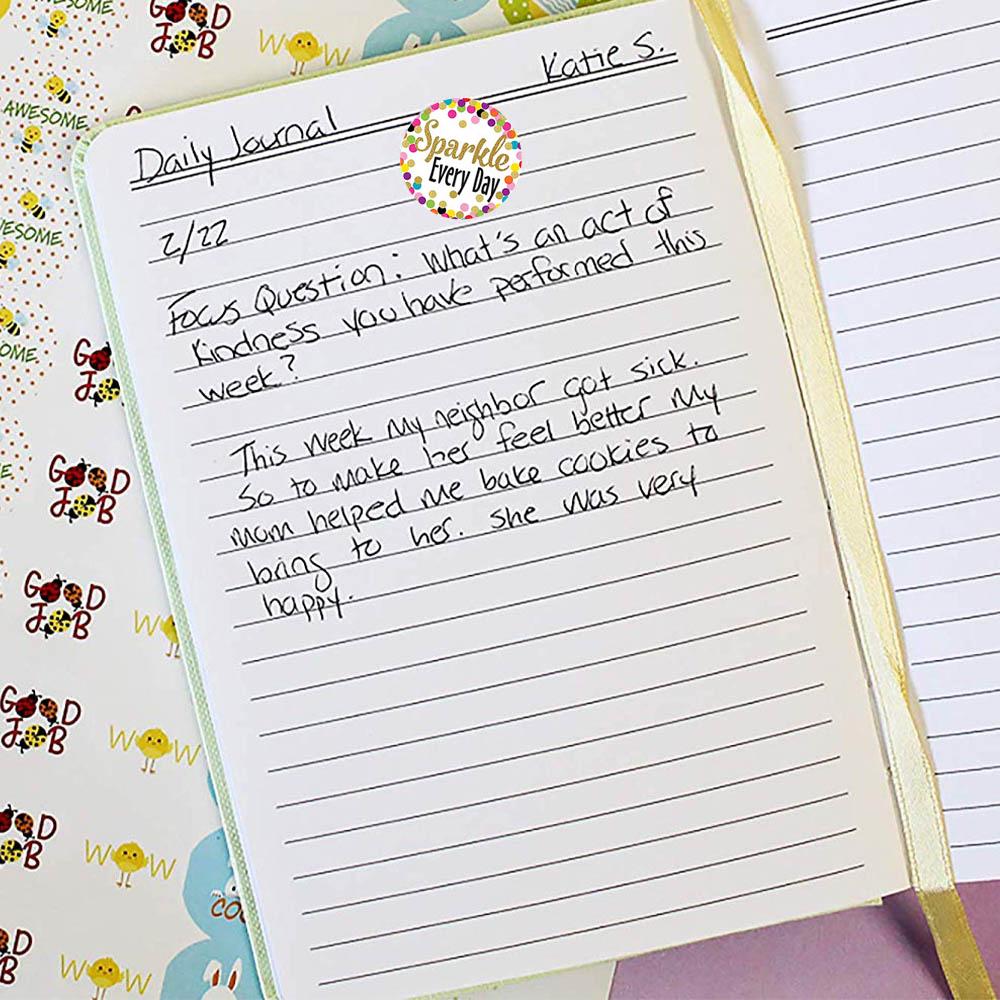 Katie S.
Daily Journal
Sparkle
EVERY DAY
2/22
Focus Question: What's an act of
kindness you have performed this
week?
This week my neighbor got sick.
So to make her feel better my
mom helped me bake cookies to
bring to her. She was very
happy.
AWESOME
GOOD
JOB
WOW
AWESOME
AWESOME.
ESOME.
OME.
GOOD
JOB
GOOD
JOB
GOOD
JOB
WOW
GOOD
JOB
WOW
OD
OB
WOW
COO
D
B
WOW